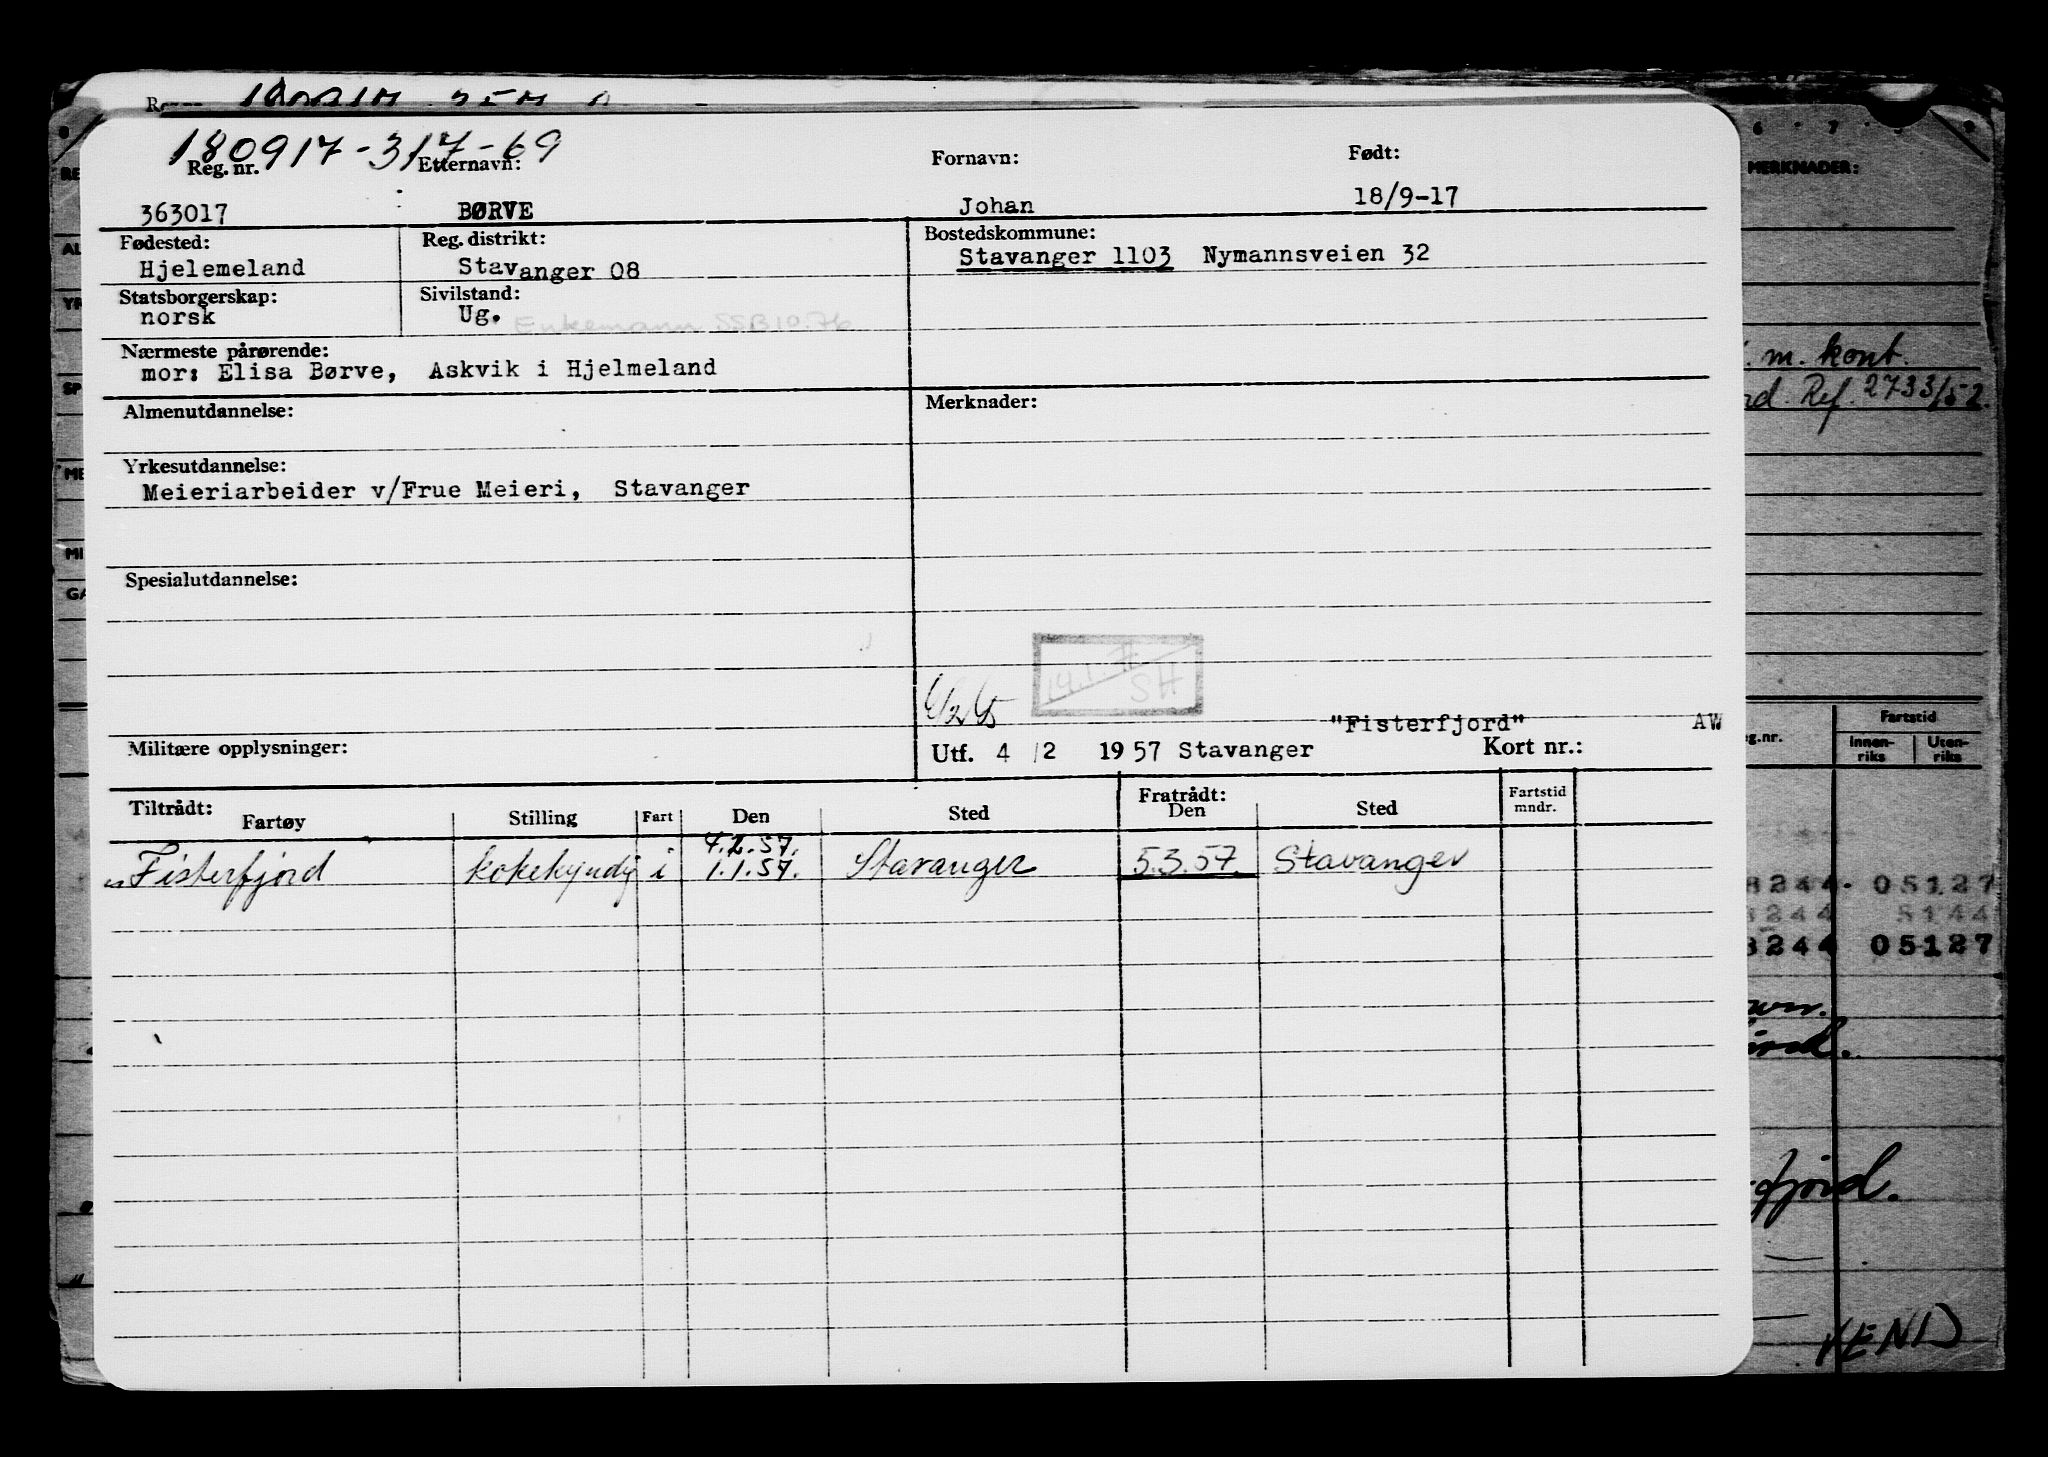 180917-317-69
Reg. nr. Etternavn: Fornavn: Født:
363017 BØRVE Johan 18/9-17
Fødested: Reg. distrikt: Bostedskommune:
Hjelemeland Stavanger 08 Stavanger 1103 Nymannsveien 32
Statsborgerskap: Sivilstand:
norsk Ug. Enkemann SSB 10.76
Nærmeste pårørende:
mor: Elisa Børve, Askvik i Hjelmeland
Almenutdannelse: Merknader:
Yrkesutdannelse:
Meieriarbeider v/Frue Meieri, Stavanger
Spesialutdannelse:
SH
"Fisterfjord" AW
Militære opplysninger: Utf. 4/2 1957 Stavanger Kort nr.:
Tiltrådt: Fratrådt: Fartstid
Fartøy Stilling Fart Den Sted Den Sted mndr.
4.2.57.
Fisterfjord kokekyndig i 1.1.57. Stavanger 5.3.57. Stavanger
6 7 8 9
MERKNADER:
m. kont.
Ref. 2733/52.
Fartstid
g.nr. Innen-riks Uten-riks
8244 05127
3244 5144
8244 05127
fjord.
VEND